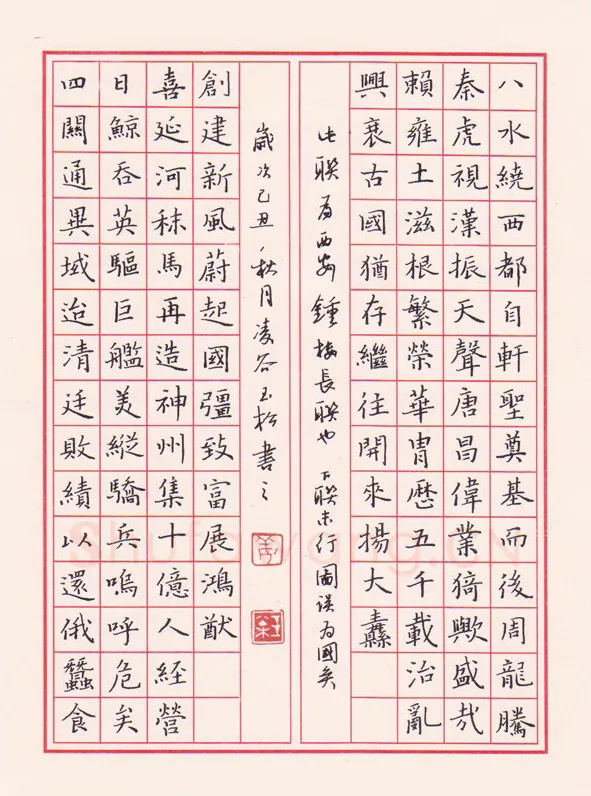 八水繞西都自軒聖奠基而後周龍騰
秦虎視漢振天聲唐昌偉業猗歟盛哉
賴雍土滋根繁榮華胄歷五千載治亂
興衰古國猶存繼往開來揚大纛
此联為西安鍾楼長联也 下联末行圖误為國矣
四關通異域迨清廷敗績以還俄蠶食
日鯨吞英驅巨艦美縱驕兵嗚呼危矣
喜延河秣馬再造神州集十億人経營
創建新風蔚起國彊致富展鴻猷
歲次己丑秋月凌谷玉松書之
Shufawang.CN